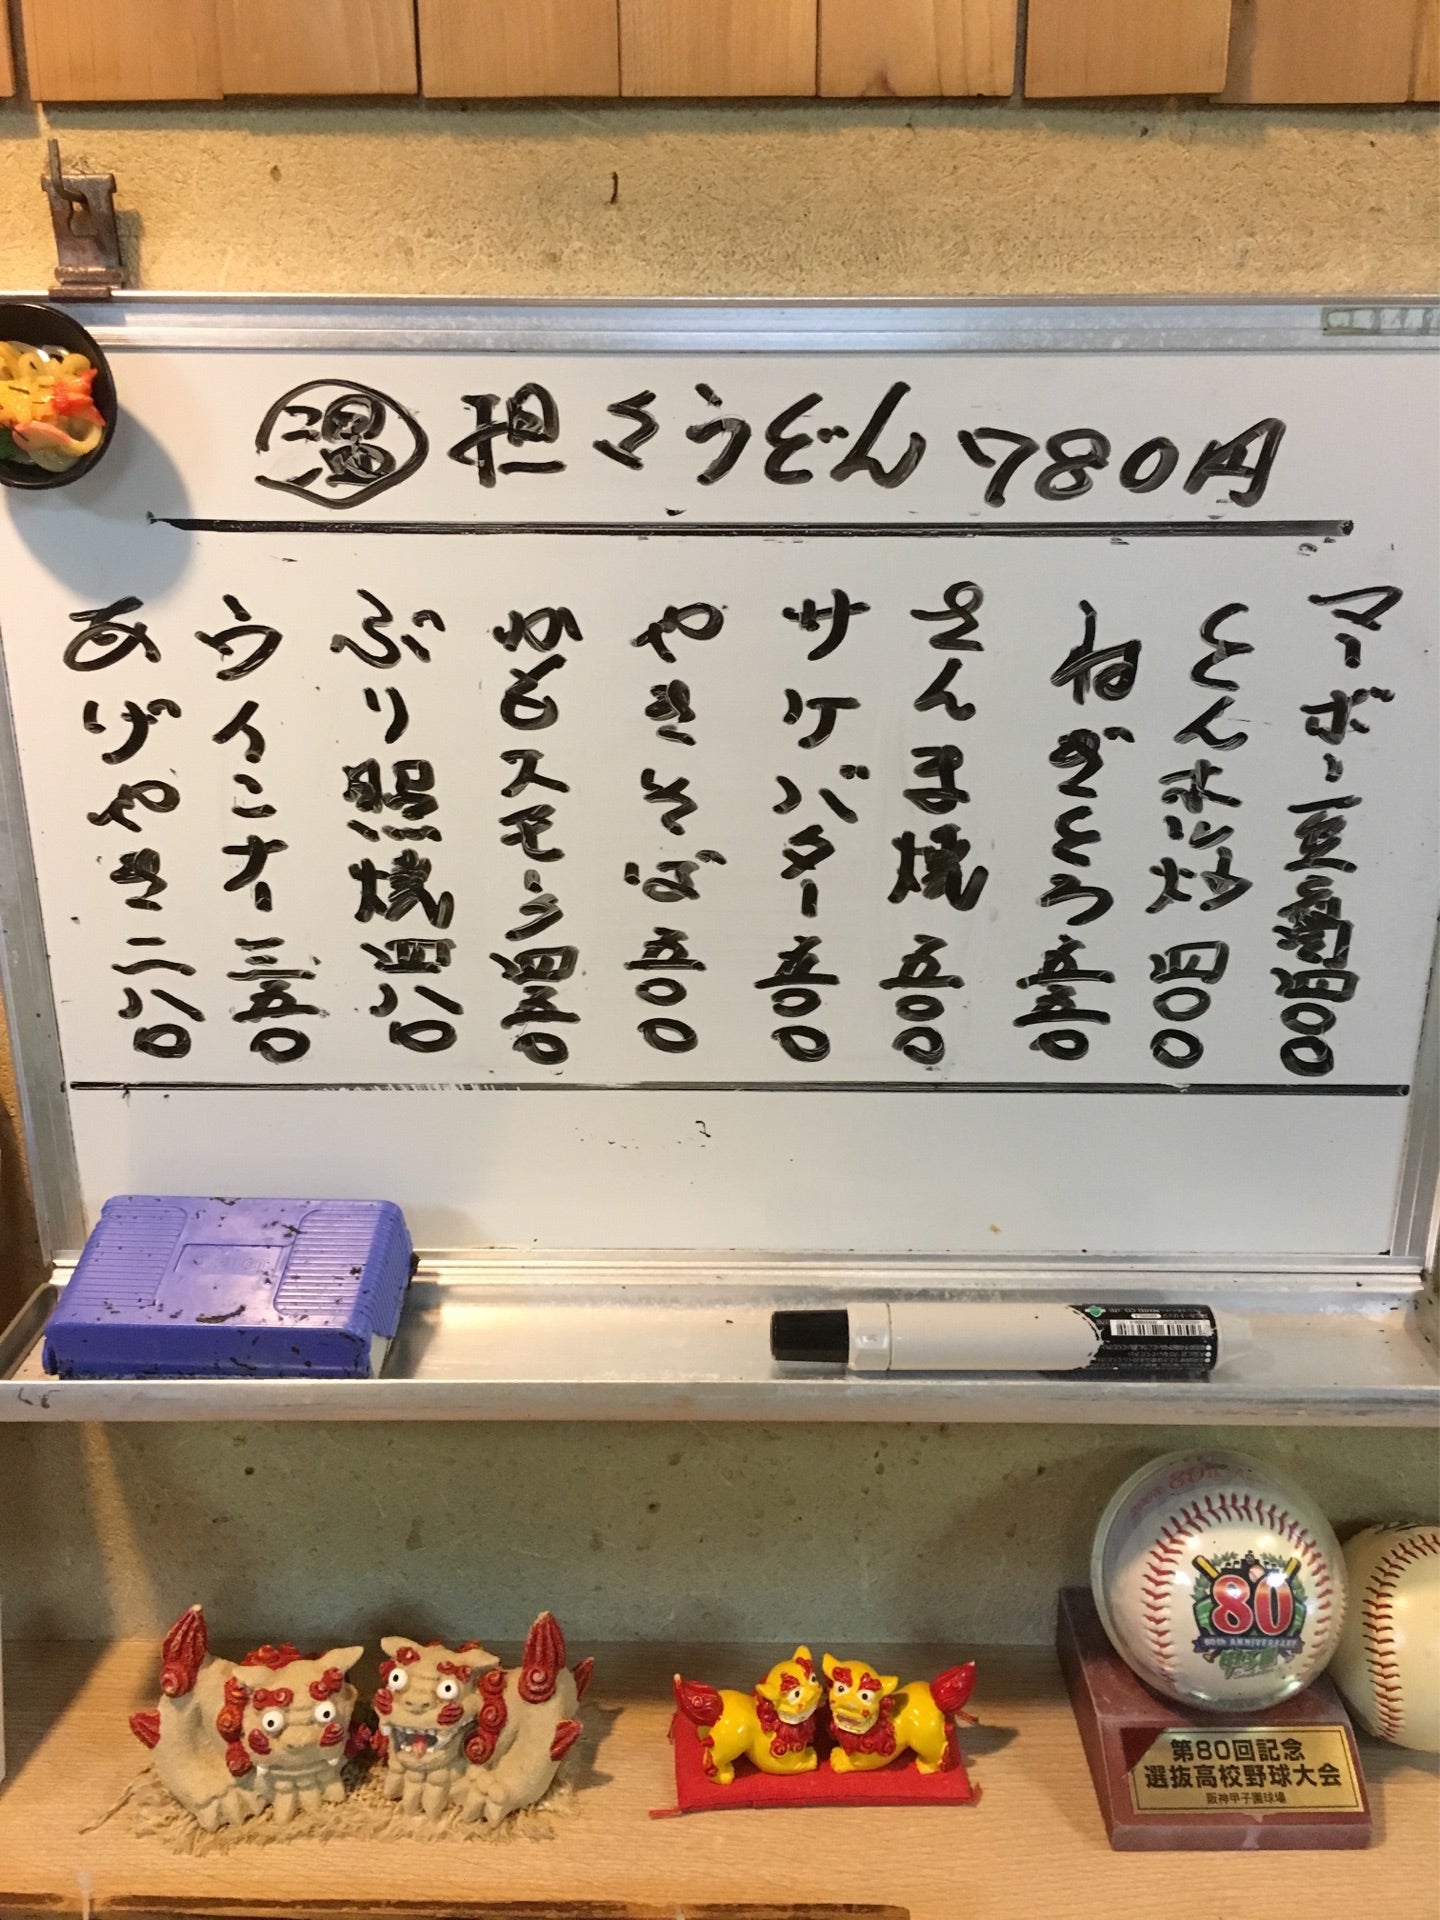 温 担々うどん 780円
マーボー豆腐四〇〇
とんホル炒四〇〇
ねぎとろ五五〇
さんま焼五〇〇
サケバター五〇〇
やきそば五〇〇
かもスモーク四五〇
ぶり照焼四八〇
ウインナー三五〇
あげやき二八〇
80
80th ANNIVERSARY
甲子園
第80回記念
選抜高校野球大会
阪神甲子園球場